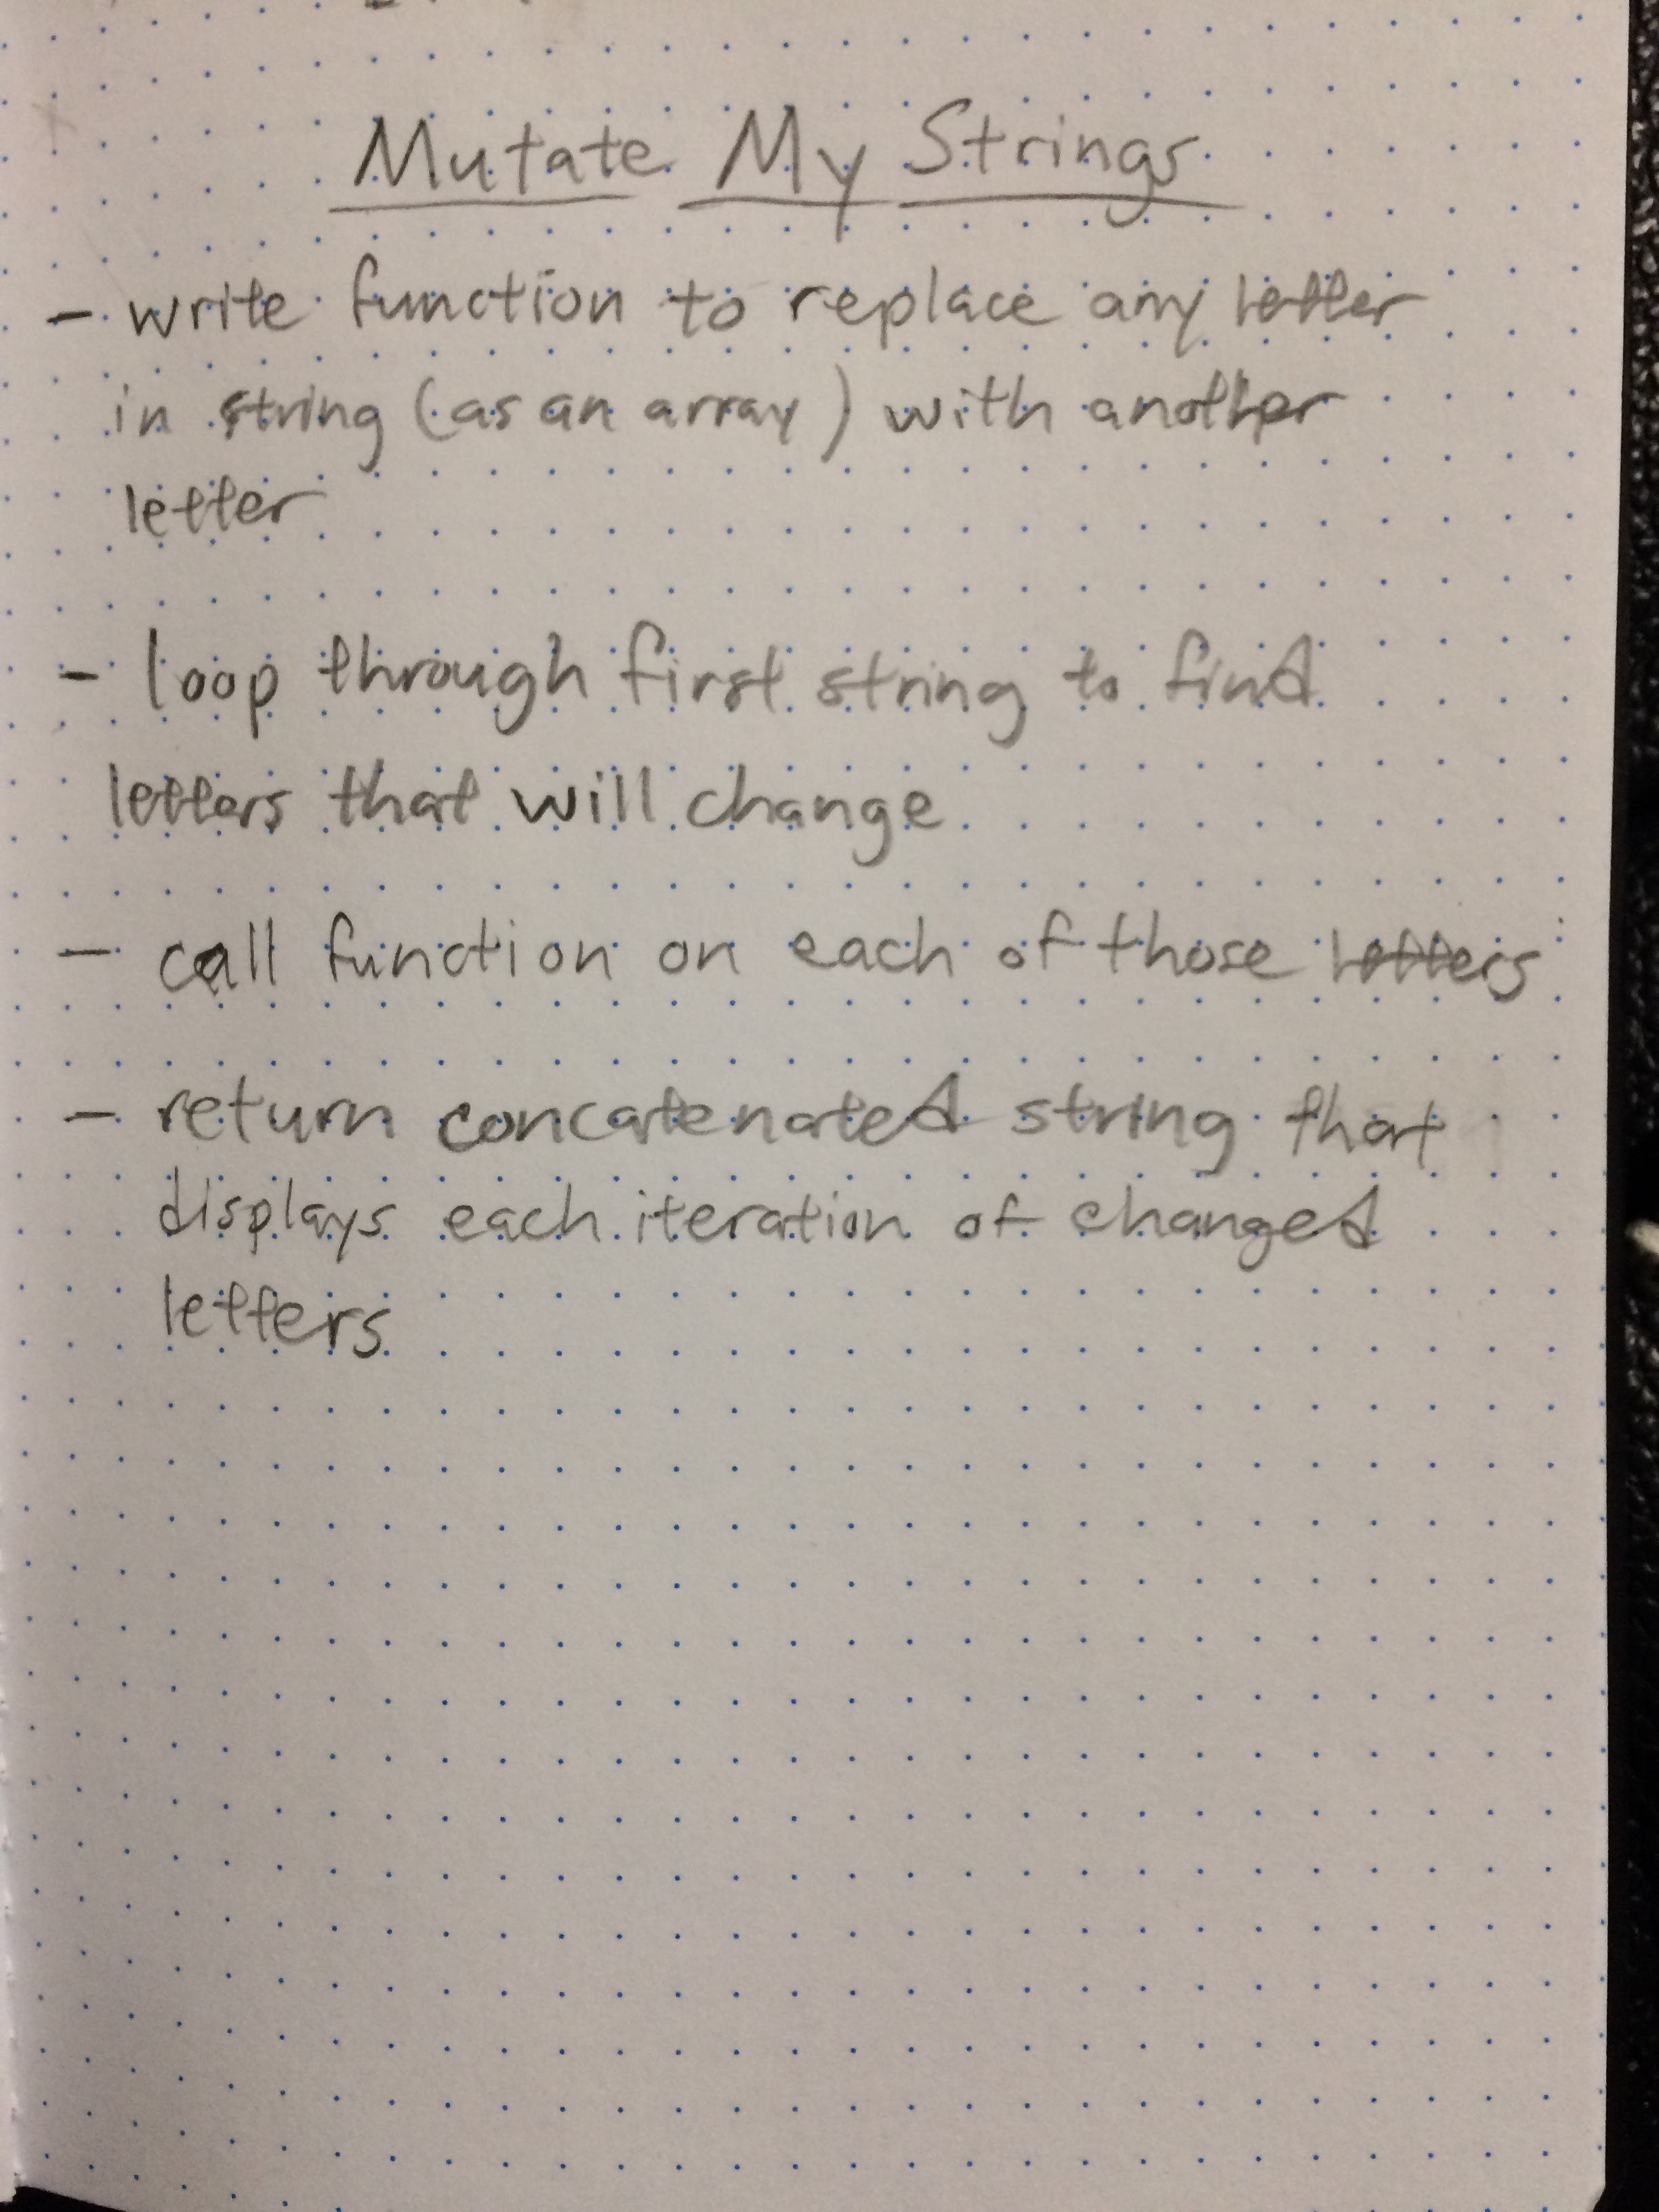 Mutate My Strings
- write function to replace any letter
in string (as an array) with another
letter
- loop through first string to find
letters that will change
- call function on each of those letters
- return concatenated string that
displays each iteration of changed
letters